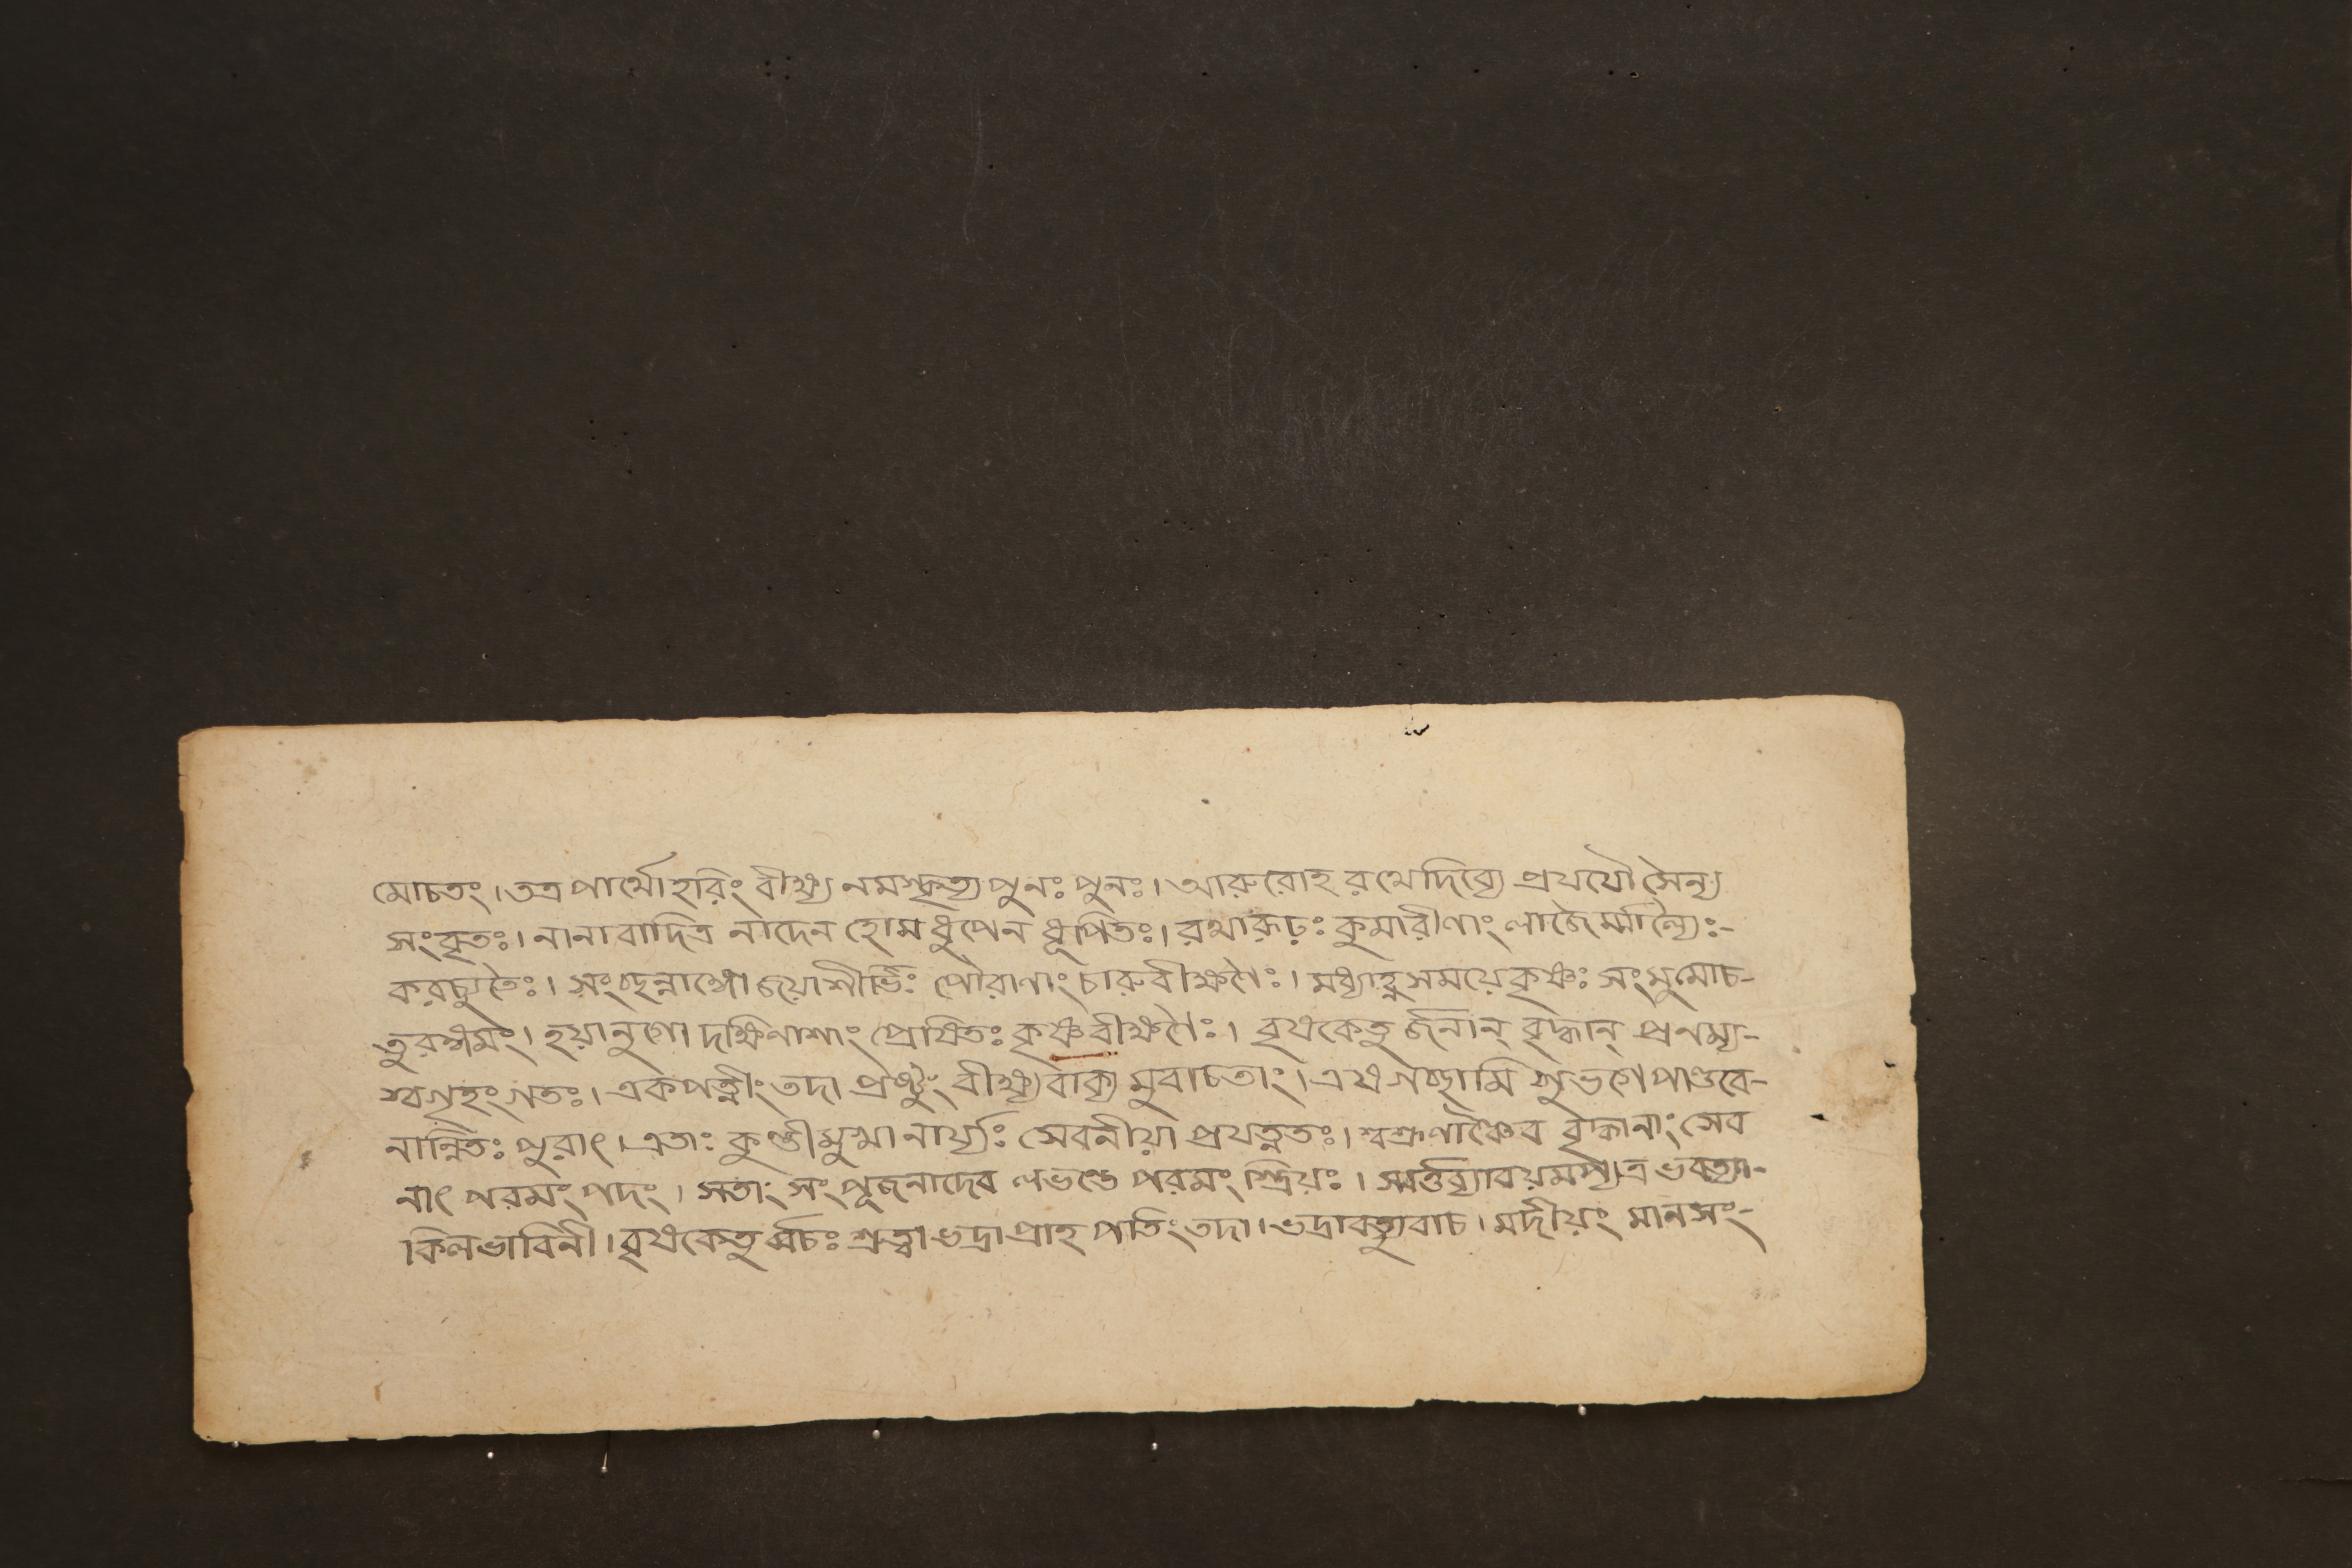 মোচতং। তত্র পার্থোহরিং বীক্ষ্য নমস্কৃত্য পুনঃ পুনঃ। আরুরোহ রথে দিব্যে প্রযযৌ সৈন্য
সংবৃতঃ। নানাবাদিত্র নাদেন হোমধুপেন ধূপিতঃ। রথারূঢ়ঃ কুমারীণাং লাজৈর্ম্মাল্যৈঃ-
করচ্যুতৈঃ। সংচ্ছন্নাঙ্গো জয়াশীর্ভিঃ পৌরাণাং চারুবীক্ষণৈঃ। মধ্যাহ্ন সময়ে কৃষ্ণঃ সংমুমোচ-
তুরঙ্গমং। হয়ানুগো দক্ষিণাশাং প্রোষিতঃ কৃষ্ণ বীক্ষণৈঃ। বৃষকেতু র্জনান্ বৃদ্ধান্ প্রনম্য-
স্বগৃহংগতঃ। একপত্নীং তদা প্রষ্টুং বীক্ষ্য বাক্য মুবাচতাং। এষ গচ্ছামি শুভগে পাণ্ডবে-
নান্বিতঃ পুরাৎ। এতাঃ কুন্তীমুখ্যা নার্য্যঃ সেবনীয়া প্রযত্নতঃ। শ্বশ্রূণাঞ্চৈব বৃদ্ধানাং সেব
নাৎ পরমং পদং। সতাং সংপূজনাদেব লভন্তে পরমং শ্রিয়ঃ। স্মর্ত্তব্যাবয়মপ্যত্র ভবত্যা-
কিলভাবিনী। বৃষকেতু র্ব্বচঃ শ্রুত্বা ভদ্রা প্রাহ পতিং তদা। ভদ্রাবত্যুবাচ। মদীয়ং মানসং-